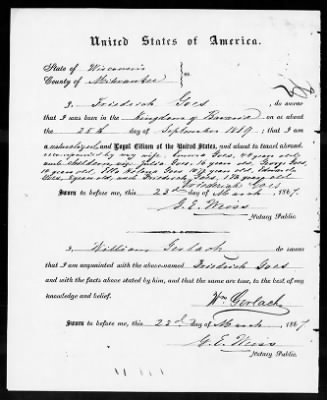 United States of America.
State of Wisconsin
County of Milwaukee } ss
I, Friederich Goes, do swear
that I was born in the Kingdom of Bavaria on or about the
25th day of September 1819; that I am
a naturalized and Loyal Citizen of the United States, and about to travel abroad,
accompanied by my wife, Emma Goes, years old
and children viz Julia Goes, 16 year old, George Goes
year old, Goes year old,
Goes, year old, and Friedrich Goes, year old
Friederich Goes
Sworn to before me, this 23d day of March, 1867.
G. E. Weiss
Notary Public.
I, William Gerlach do swear
that I am acquainted with the above-named Friedrich Goes
and with the facts above stated by him, and that the same are true, to the best of my
knowledge and belief.
Wm Gerlach
Sworn to before me, this 23d day of March 1867
G. E. Weiss
Notary Public.